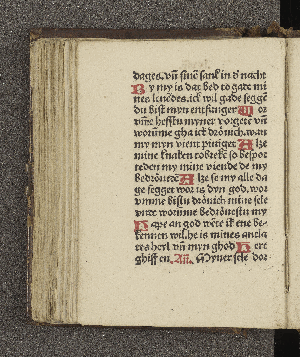 dages. vñ sinē sank in d̄ nacht
By my is dat bed to gate mi
nes leuēdes. ick wil gade seggē
du bist myn entfanger Wor
vm̄e heffstu myner vorgetē vñ
worūme gha ick drōuich. wan
my myn vient piniget Alze
mine knaken tobrekē so bespot
teden my mine viende de my
bedrōuetē Alze se my alle da
ge segget wor is dyn god. wor
vmme bistu drōuich mine sele
vnde worūme bedrōuestu my
Hape an god wēte ik ene be-
kennen wil. he is mines antla
tes heyl vñ myn ghod Here
ghiff en. Añ. Myner sele dor